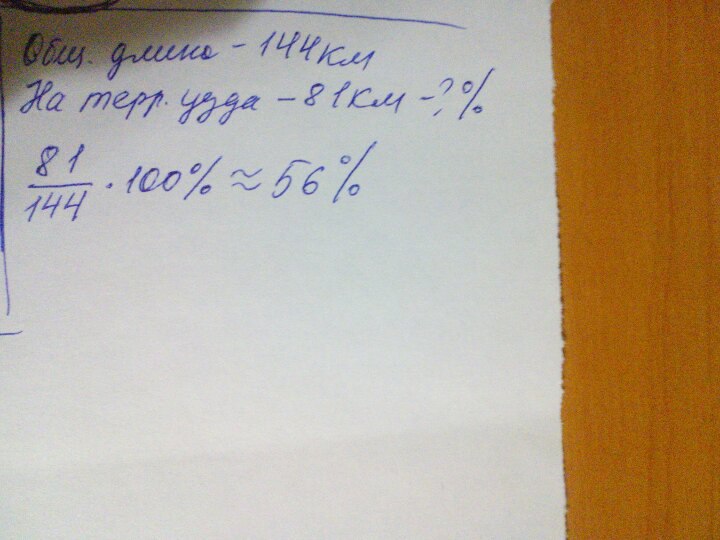 Общ. длина - 144км
На терр. уезда - 81км - ?%
81/144 · 100% ≈ 56%